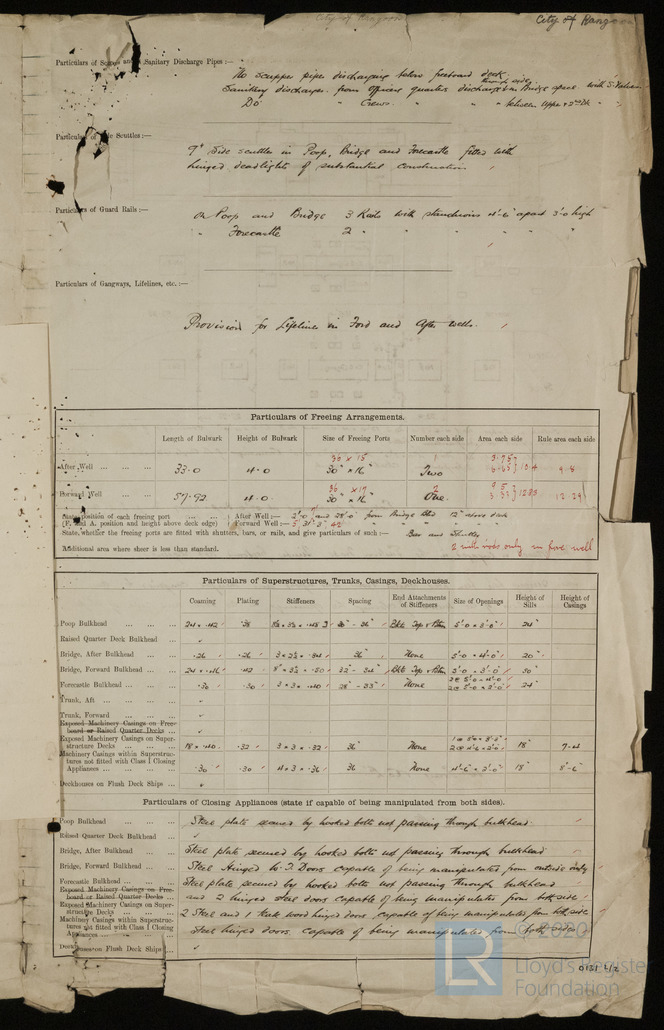 City of Rangoon
Particulars of Scupper and Sanitary Discharge Pipes :—
No scupper pipe discharging below freeboard deck
Sanitary discharges from officers quarters discharge through side in Bridge space with S. Valves
Do " Crews " " between Upper & 2nd Dk "
Particulars of Side Scuttles :—
9" Side scuttles in Poop, Bridge and Forecastle fitted with
hinged deadlights of substantial construction
Particulars of Guard Rails :—
On Poop and Bridge 3 Rails with stanchions 4'-6" apart 3'-0 high
" Forecastle 2 " " " " "
Particulars of Gangways, Lifelines, etc. :—
Provision for Lifelines in Ford and After wells.
Particulars of Freeing Arrangements.
Length of Bulwark Height of Bulwark Size of Freeing Ports Number each side Area each side Rule area each side
36 x 15 3.75
After Well 33.0 4.0 30" x 16" Two 10.4 9.8
36 x 19 2 9.5
Forward Well 57.92 4.0 30" x 16" One 12.29
State position of each freeing port After Well :— from Bridge Bhd 12" above deck
(F. and A. position and height above deck edge) Forward Well :— " " " "
State, whether the freeing ports are fitted with shutters, bars, or rails, and give particulars of such :— Bar and Shutter
2 with rods only in fore well
Additional area where sheer is less than standard.
Particulars of Superstructures, Trunks, Casings, Deckhouses.
Coaming Plating Stiffeners Spacing End Attachments of Stiffeners Size of Openings Height of Sills Height of Casings
Poop Bulkhead 24 x .42 .38 30" - 36" Bkts Top & Bttm 5'.0 x 3'.0" 24"
Raised Quarter Deck Bulkhead
Bridge, After Bulkhead .26 .26 3 x 2½ x .34 36" None 5'.0 x 4'.0 20"
Bridge, Forward Bulkhead 24 x .46 .42 8" x 3½ x .50 32" - 34" Bkts Top & Bttm 5'.0 x 3'.0" 30"
Forecastle Bulkhead .30 .30 3 x 3 x .40 28" - 33" None 2 @ 5'.0 x 4'.0 24"
Trunk, Aft
Trunk, Forward
Exposed Machinery Casings on Free-
board or Raised Quarter Decks
Exposed Machinery Casings on Super-
structure Decks 18 x .40 .32 3 x 3 x .32 36" None 18" 7-4
Machinery Casings within Superstruc-
tures not fitted with Class I Closing
Appliances .30 .30 4 x 3 x .36 36 None 4'-6 x 2'-0" 18" 8'-6"
Deckhouses on Flush Deck Ships
Particulars of Closing Appliances (state if capable of being manipulated from both sides).
Poop Bulkhead Steel plate secured by hooked bolts not passing through bulkhead
Raised Quarter Deck Bulkhead
Bridge, After Bulkhead Steel plate secured by hooked bolts not passing through bulkhead
Bridge, Forward Bulkhead Steel Hinged W.T. Doors capable of being manipulated from outside only
Forecastle Bulkhead Steel plate secured by hooked bolts not passing through bulkhead
Exposed Machinery Casings on Free-
board or Raised Quarter Decks and 2 hinged steel doors capable of being manipulated from both sides
Exposed Machinery Casings on Super-
structure Decks 2 Steel and 1 teak wood hinged doors capable of being manipulated from both sides
Machinery Casings within Superstruc-
tures not fitted with Class I Closing
Appliances Steel hinged doors capable of being manipulated from both sides
Deckhouses on Flush Deck Ships
© 2020
Lloyd's Register
Foundation